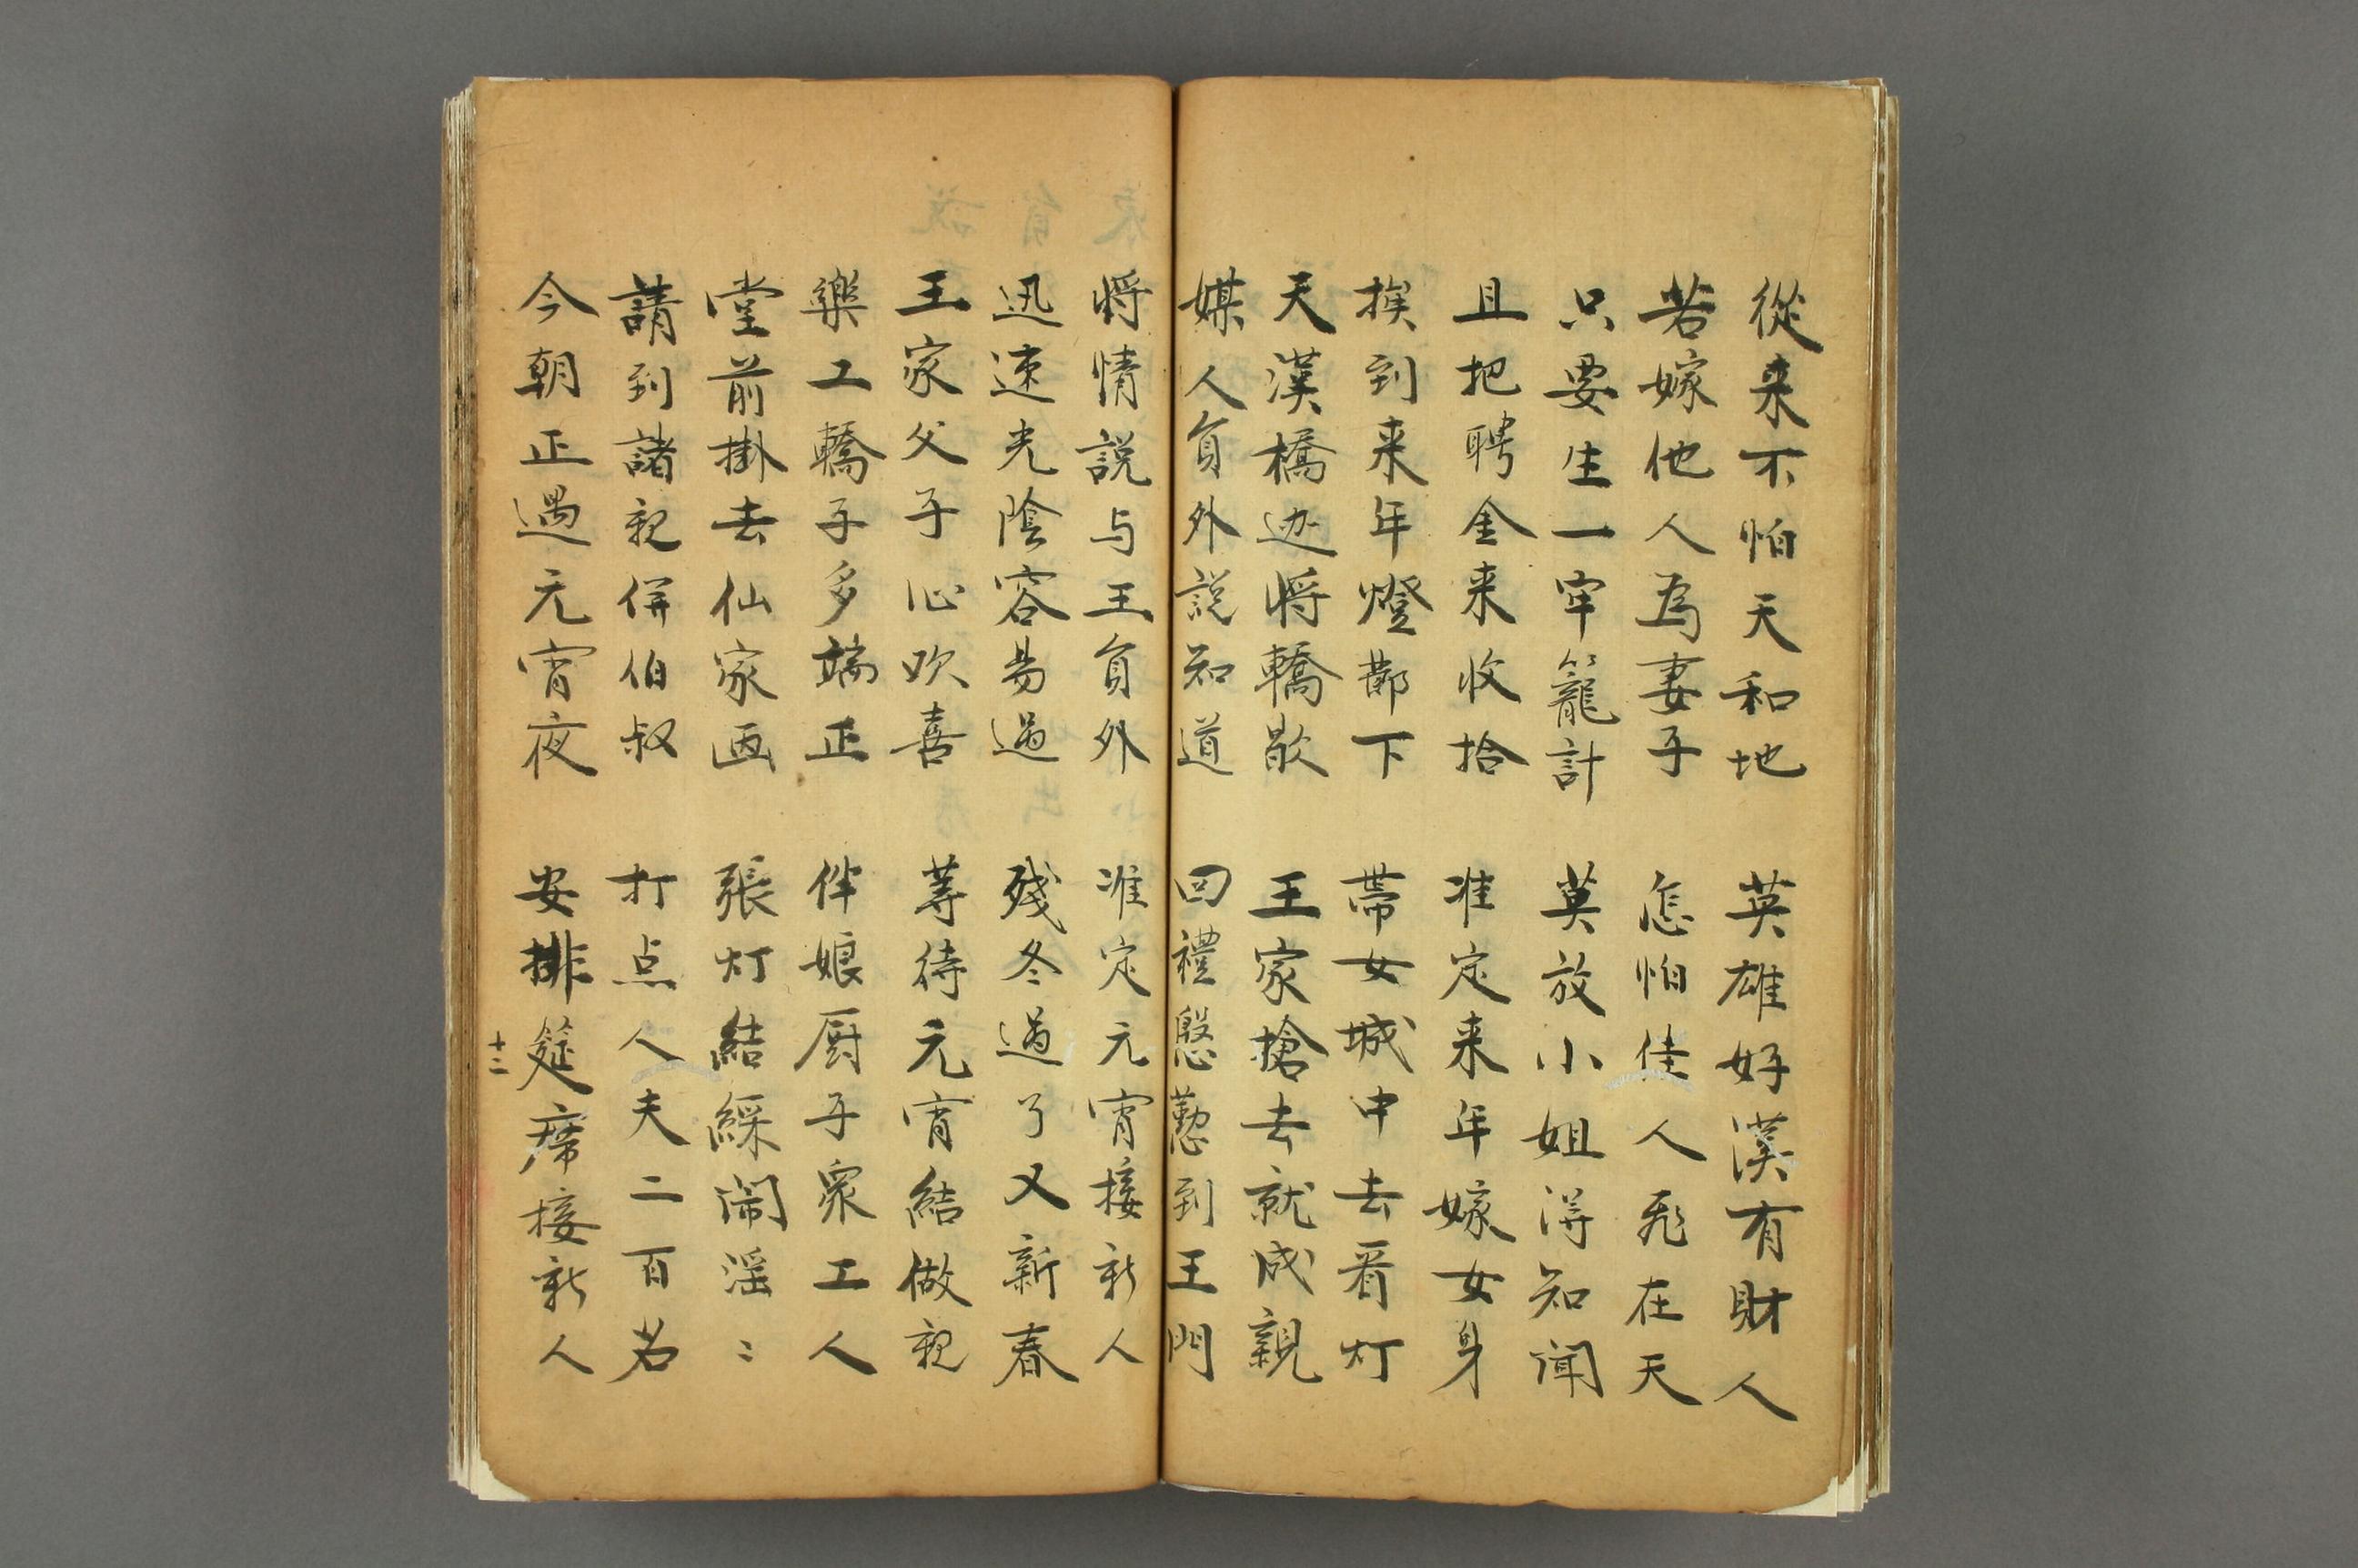 從来不怕天和地　英雄好漢有財人
若嫁他人為妻子　怎怕佳人飛在天
只要生一牢籠計　莫放小姐得知聞
且把聘金来收拾　准定来年嫁女身
挨到来年燈鄑下　帶女城中去看灯
天漢橋边将轎歇　王家搶去就成親
媒人員外説知道　回禮慇懃到王門
将情説与王員外　准定元宵接新人
迅速光陰容易過　殘冬過了又新春
王家父子心欢喜　等待元宵結做親
樂工轎子多端正　伴娘厨子衆工人
堂前掛去仙家画　張灯結綵閙滛〻
請到諸親併伯叔　打点人夫二百名
今朝正遇元宵夜　安排筵席接新人
十二